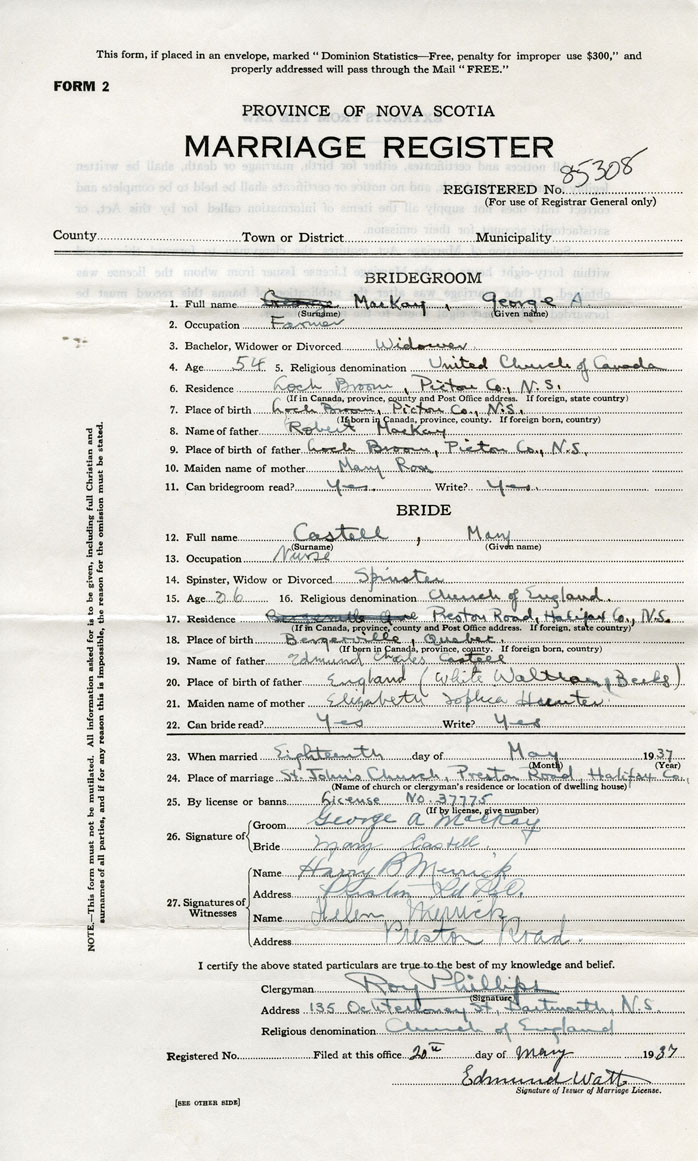 This form, if placed in an envelope, marked "Dominion Statistics—Free, penalty for improper use $300," and
properly addressed will pass through the Mail "FREE."
FORM 2
PROVINCE OF NOVA SCOTIA
MARRIAGE REGISTER
REGISTERED No. 85308
(For use of Registrar General only)
County Town or District Municipality
BRIDEGROOM
1. Full name MacKay, George A.
(Surname) (Given name)
2. Occupation Farmer
3. Bachelor, Widower or Divorced Widower
4. Age 54 5. Religious denomination United Church of Canada
6. Residence Loch Broom, Pictou Co., N.S.
(If in Canada, province, county and Post Office address. If foreign, state country)
7. Place of birth Loch Broom, Pictou Co., N.S.
(If born in Canada, province, county. If foreign born, country)
8. Name of father Robert MacKay
9. Place of birth of father Loch Broom, Pictou Co., N.S.
10. Maiden name of mother Mary Ross
11. Can bridegroom read? Yes. Write? Yes.
BRIDE
12. Full name Castell, Mary
(Surname) (Given name)
13. Occupation Nurse
14. Spinster, Widow or Divorced Spinster
15. Age 26 16. Religious denomination Church of England.
17. Residence Preston Road, Halifax Co., N.S.
(If in Canada, province, county and Post Office address. If foreign, state country)
18. Place of birth Bergerville, Quebec.
(If born in Canada, province, county. If foreign born, country)
19. Name of father Edmund Charles Castell
20. Place of birth of father England (White Waltham, Berks)
21. Maiden name of mother Elizabeth Sophia Hunter
22. Can bride read? Yes Write? Yes
23. When married Eighteenth day of May 1937
(Month) (Year)
24. Place of marriage St. John's Church, Preston Road, Halifax Co.,
(Name of church or clergyman's residence or location of dwelling house)
25. By license or banns License No. 37775
(If by license, give number)
26. Signature of
Groom George A MacKay
Bride Mary Castell.
27. Signatures of Witnesses
Name Harry B Merrick
Address Preston Rd
Name Helen Merrick
Address Preston Road.
I certify the above stated particulars are true to the best of my knowledge and belief.
Clergyman Roy Phillips
(Signature)
Address 135 St, Dartmouth, N.S.
Religious denomination Church of England
Registered No. Filed at this office 20th day of May 1937
Edmund Watt
Signature of Issuer of Marriage License.
[SEE OTHER SIDE]
NOTE.—This form must not be mutilated. All information asked for is to be given, including full Christian and
surnames of all parties, and if for any reason this is impossible, the reason for the omission must be stated.